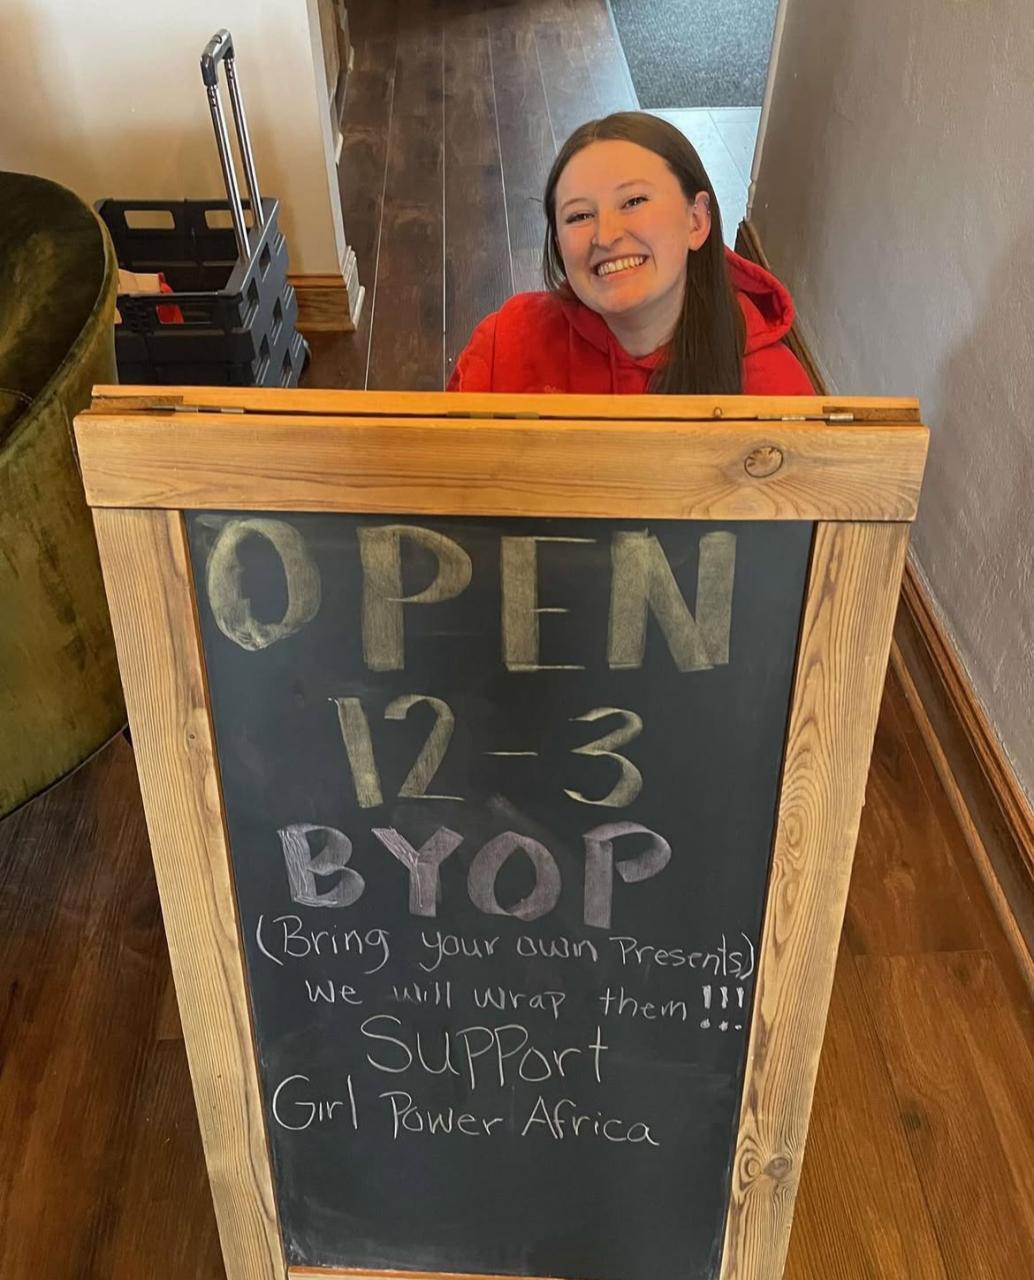 OPEN
12-3
BYOP
(Bring your own Presents)
We will wrap them!!!
Support
Girl Power Africa